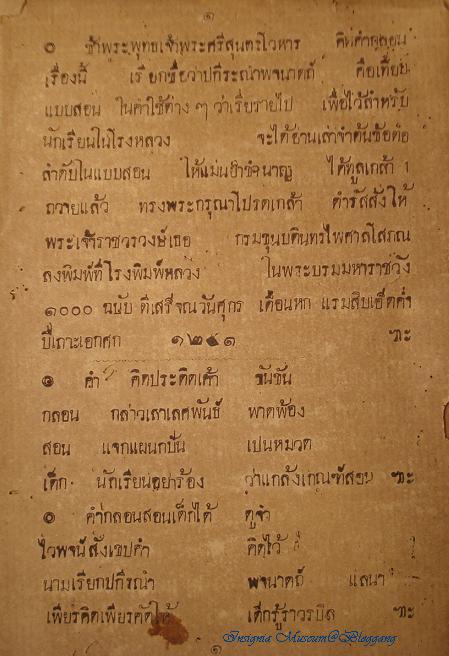 ๑
๏ ข้าพระพุทธเจ้าพระศรีสุนทรโวหาร คิดคำกลอน
เรื่องนี้ เรียกชื่อว่าปกีระณำพจนาดถ์ คือเทียบ
แบบสอน ในคำใช้ต่าง ๆ ว่าเรี่ยรายไป เพื่อไว้สำหรับ
นักเรียนในโรงหลวง จะได้อ่านเล่าจำต้นข้อต่อ
ลำดับในแบบสอน ให้แม่นยำชำนาญ ได้ทูลเกล้า ฯ
ถวายแล้ว ทรงพระกรุณาโปรดเกล้า ดำรัสสั่งให้
พระเจ้าราชวรวงษ์เธอ กรมขุนบดินทรไพศาลโสภณ
ลงพิมพ์ที่โรงพิมพ์หลวง ในพระบรมมหาราชวัง
๑๐๐๐ ฉบับ ตีเสร็จณวันศุกร เดือนหก แรมสิบเอ็ดค่ำ
ปีเถาะเอกศก ๑๒๔๑ ฯะ
๏ คำ คิดประดิดเค้า ขันขัน
กลอน กล่าวเลาเลศพันธ์ พาดพ้อง
สอน แจกแผนกปัน เปนหมวด
เด็ก นักเรียนอย่าร้อง ว่าแกล้งเกณฑ์สอน ฯะ
๏ คำกลอนสอนเด็กได้ ดูจำ
ไวพจน์สังเขปคำ คิดไว้
นามเรียกปกีรณำ พจนาดถ์ แลนา
เพียรคิดเพียรคัดให้ เด็กรู้ราวรบิล ฯะ
๑
Insignia Museum@Bloggang